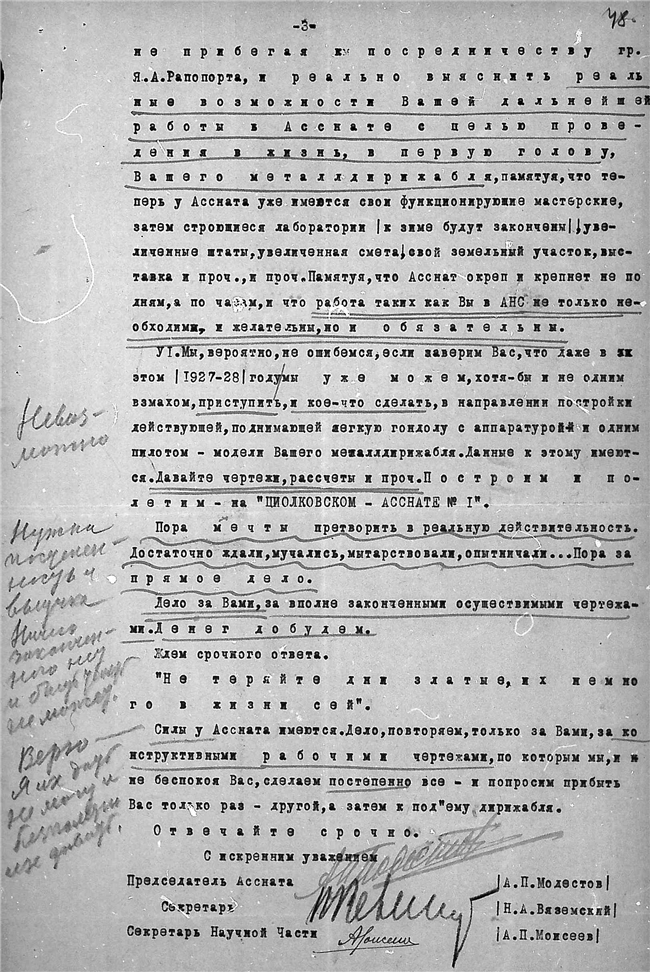 -3-
78.
не прибегая к посредничеству гр.
Я.А.Рапопорта, и реально выяснить реаль
ные возможности Вашей дальнейшей
работы в Асснате с целью прове-
дения в жизнь, в первую голову,
Вашего металлдирижабля, памятуя, что те-
перь у Ассната уже имеются свои функционирующие мастерские,
затем строющиеся лаборатории |к зиме будут закончены|, уве-
личенные штаты, увеличенная смета, свой земельный участок, выс-
тавка и проч., и проч. Памятуя, что Асснат окреп и крепнет не по
дням, а по часам, и что работа таких как Вы в АНС не только не-
обходимы, и желательны, но и обязательны.
УI. Мы, вероятно, не ошибемся, если заверим Вас, что даже в
этом |1927-28| году мы уже можем, хотя-бы и не одним
взмахом, приступить, и кое-что сделать, в направлении постройки
действующей, поднимающей легкую гондолу с аппаратурой и одним
пилотом - модели Вашего металлдирижабля. Данные к этому имеют-
ся. Давайте чертежи, рассчеты и проч. Построим и по-
летим - на "ЦИОЛКОВСКОМ - АССНАТЕ № I".
Пора мечты претворить в реальную действительность.
Достаточно ждали, мучались, мытарствовали, опытничали... Пора за
прямое дело.
Дело за Вами, за вполне законченными осуществимыми чертежа-
ми. Денег добудем.
Ждем срочного ответа.
"Не теряйте дни златые, их немно
го в жизни сей".
Силы у Ассната имеются. Дело, повторяем, только за Вами, за ко
нструктивными рабочими чертежами, по которым мы, и
не беспокоя Вас, сделаем постепенно все - и попросим прибыть
Вас только раз - другой, а затем к под"ему дирижабля.
Отвечайте срочно.
С искренним уважением
Председатель Ассната |А.П.Модестов|
Секретарь |Н.А.Вяземский|
Секретарь Научной Части |А.П.Моисеев|
Невоз-
можно
Нужна
постепен-
ность и
выучка
Ничего
закончен-
ного нет
и быть
не может.
Верю —
Я их дать
не могу и
бесполезно
их давать.